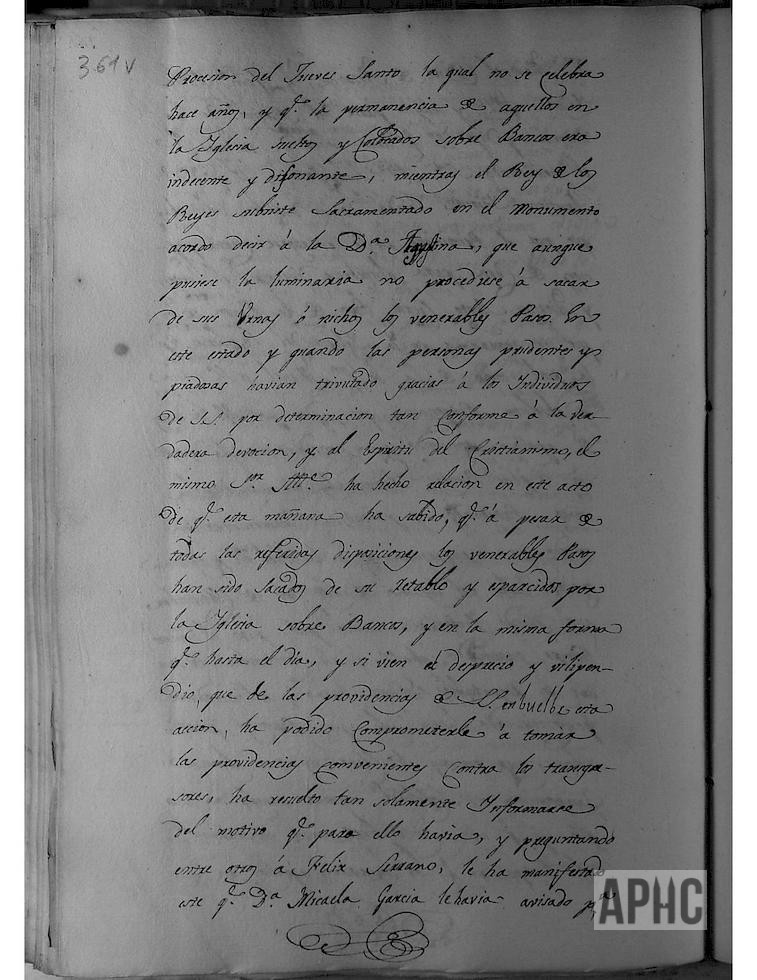 361v
Procesion del Jueves Santo la qual no se celebra
hace años, y q.e la permanencia de aquellos en
la Iglesia sueltos y Colocados sobre Bancos era
indecente y disonante, mientras el Rey de los
Reyes subsiste Sacramentado en el Monumento
acordo decir á la D.a que aunque
pusiese la luminaria no procediese á sacar
de sus Vrnas ó nichos los venerables Pasos. En
este estado y quando las personas prudentes y
piadosas havian trivutado gracias á los Individuos
de SS. por determinacion tan conforme á la ver
dadera devocion, y al Espiritu del Cristianismo, el
mismo S.or Alc.e ha hecho relacion en este acto
de q.e esta mañana ha sabido, q.e á pesar de
todas las referidas disposiciones los venerables Pasos
han sido sacados de su retablo y esparcidos por
la Iglesia sobre Bancos, y en la misma forma
q.e hasta el dia, y si vien el desprecio y vilipen-
dio, que de las providencias de S.S. enbuelbe esta
accion, ha podido Comprometerle á tomar
las providencias convenientes Contra los transgre-
sores, ha resuelto tan solamente Informarse
del motivo q.e para ello havia, y preguntando
entre otros á Felix Serrano, le ha manifestado
este q.e D.a Micaela Garcia le havia avisado p.a
APHC